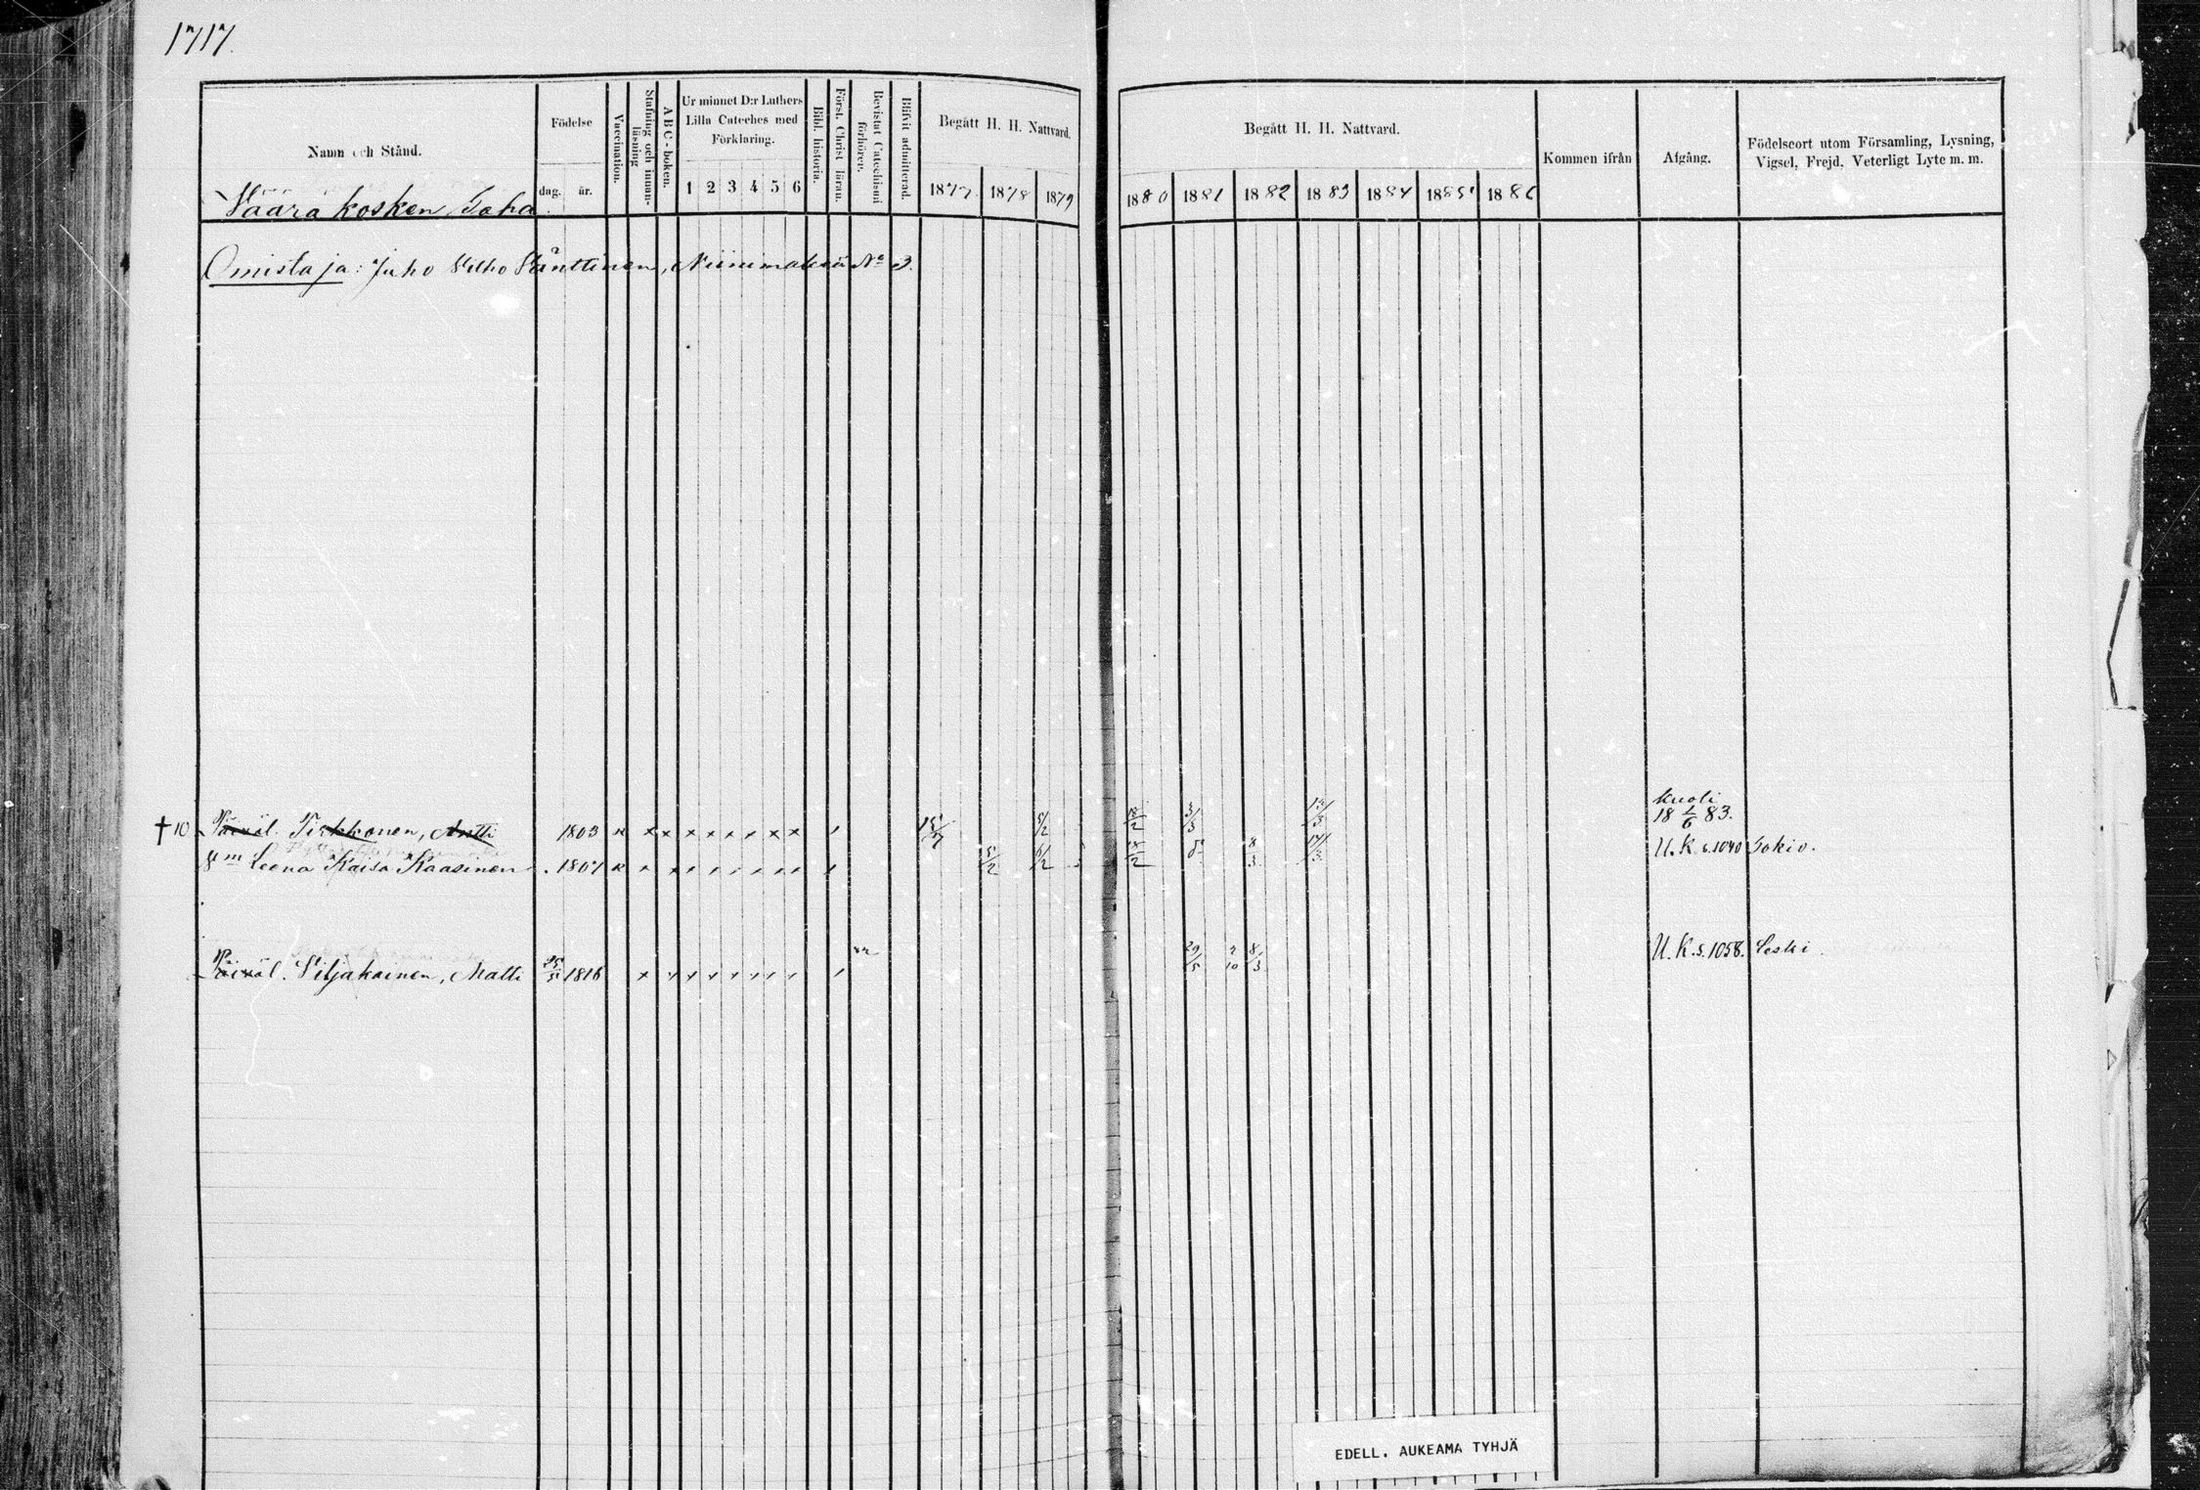 1717.
Namn och Stånd.
Födelse
dag. år.
Vaccination.
Stafning och innan-läsning
A B C - boken.
Ur minnet D:r Luthers
Lilla Cateches med
Förklaring.
1 2 3 4 5 6
Bibl. historia.
Först. Christ läran.
Bevistat Catechismi förhören.
Blifvit admitterad.
Begått H. H. Nattvard.
1877 1878 1879
Begått H. H. Nattvard.
1880 1881 1882 1883 1884 1885 1886
Kommen ifrån
Afgång.
Födelseort utom Församling, Lysning,
Vigsel, Frejd, Veterligt Lyte m. m.
Väärä kosken Saha
Omistaja: Juho Vänttinen, Niinimäki No 3.
kuoli
† 10 Tirkkonen, Antti 1803 x x x x x x x x x 5/2 3/3 18 83.
Leena Kaisa Kaasinen 1807 x x x x x x x x x 5/2 6/2 8/3 U. K. s. 1040 Sokio.
Matti 25/5 1816 x x x x x x x x 29/5 8/3 U. K. s. 1058. Leski.
EDELL. AUKEAMA TYHJÄ